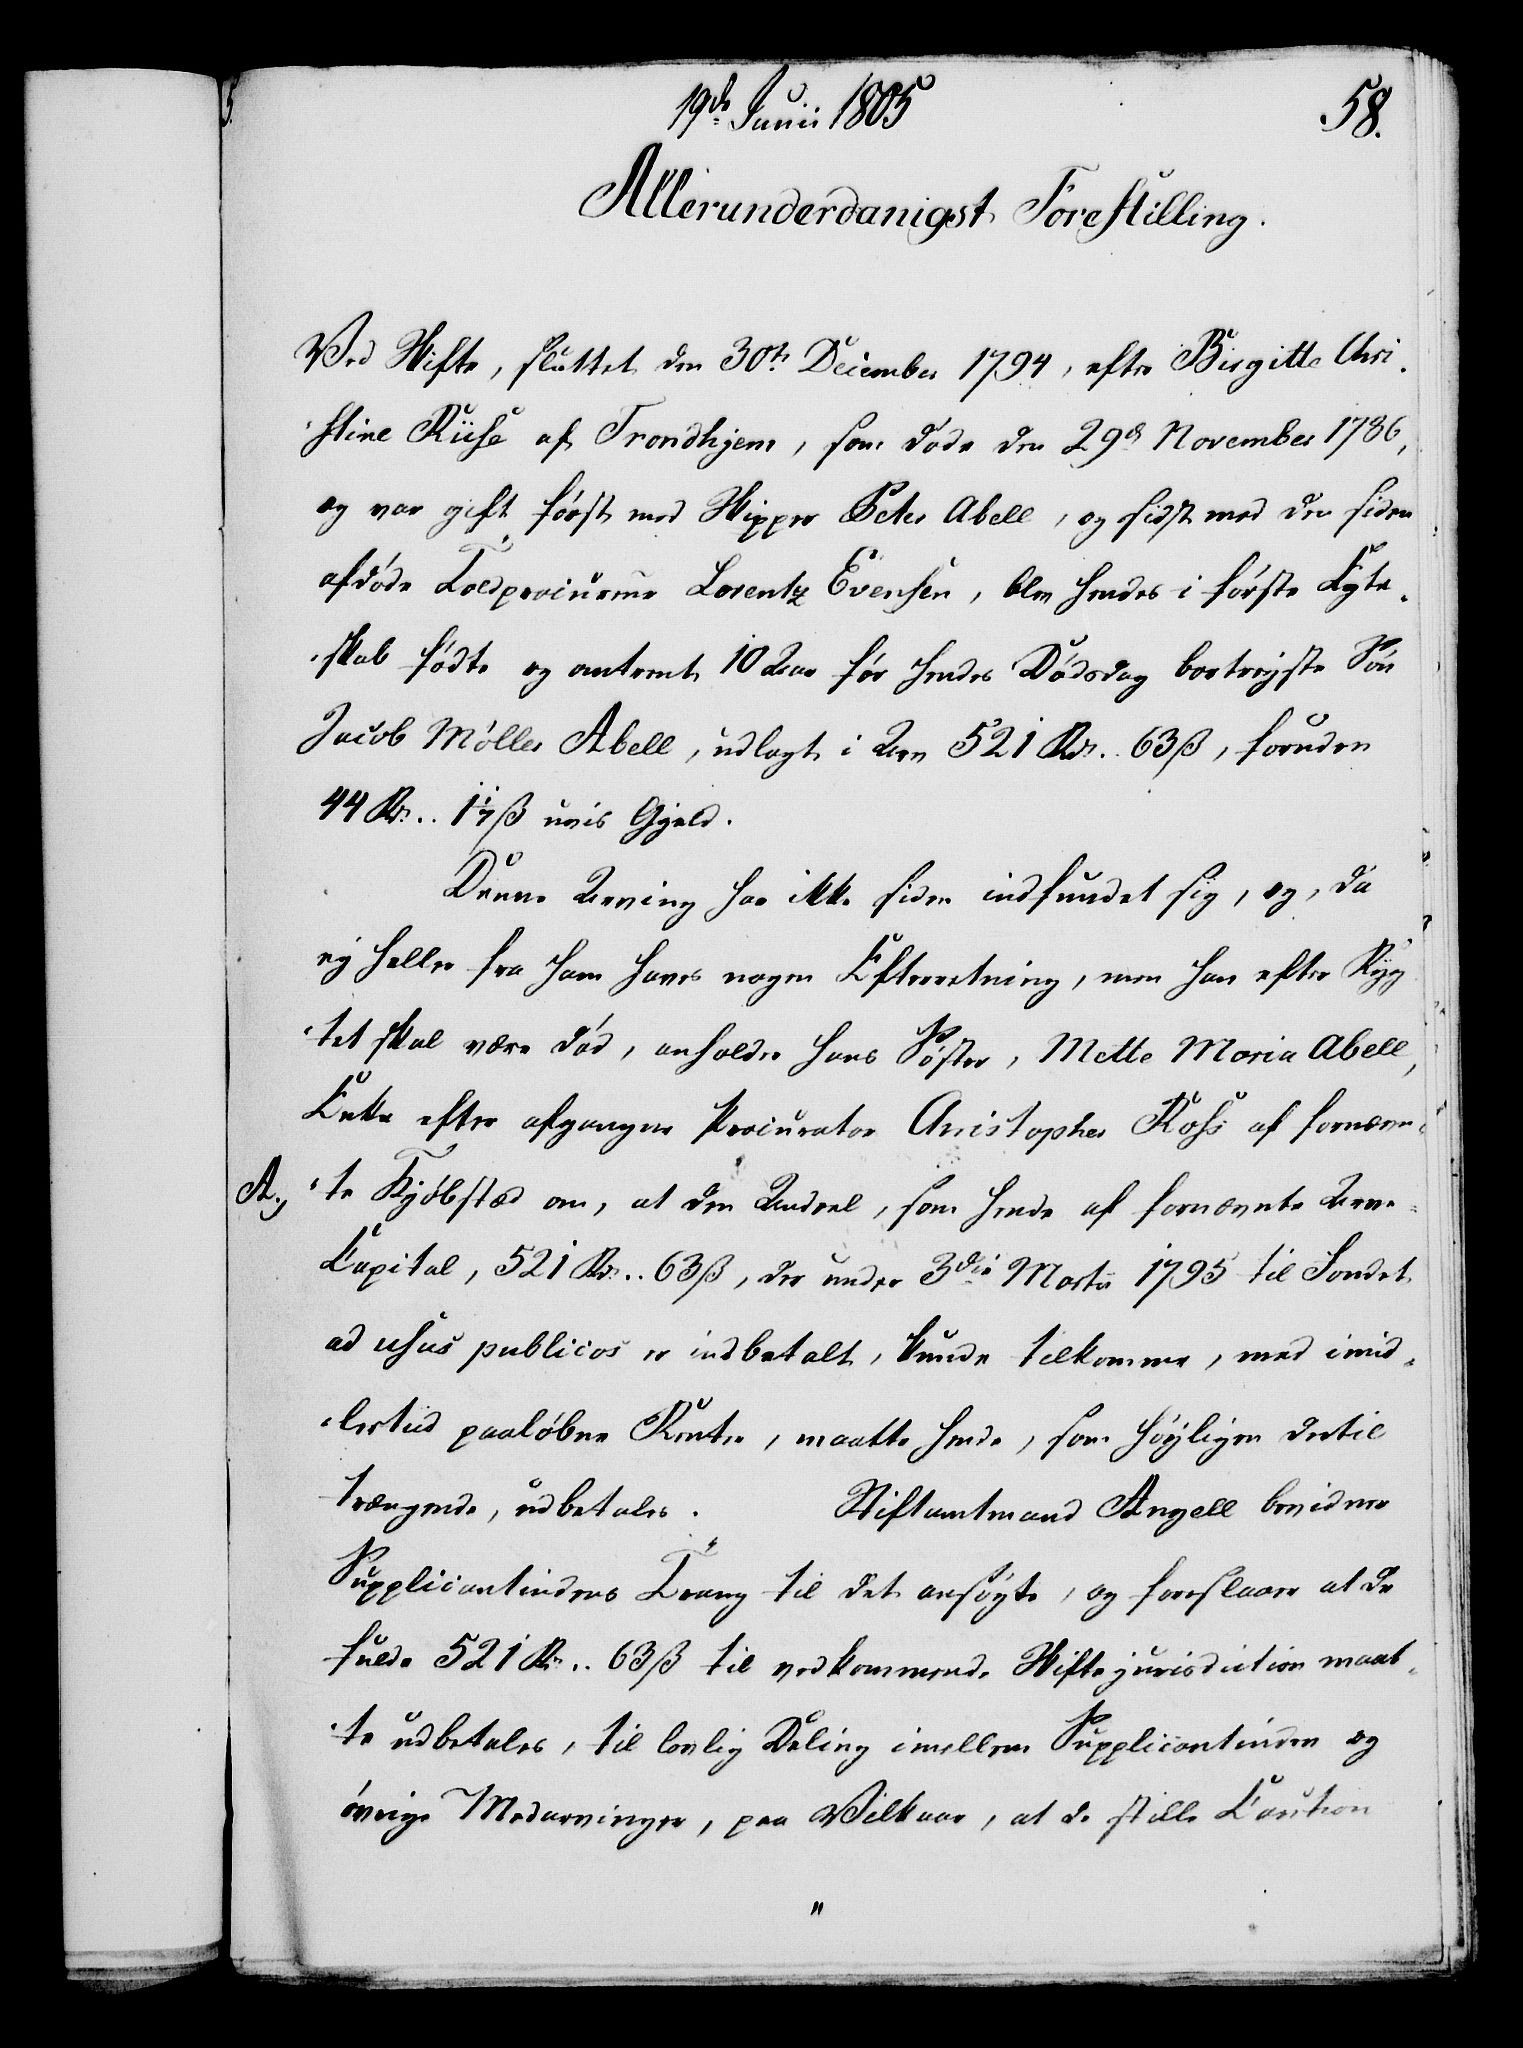 19de Junii 1805
58.
Allerunderdanigst Forestilling.
Ved Skifte, sluttet den 30te December 1794, efter Birgitte Chri-
stine Riise af Trondhjem, som døde den 29de November 1786,
og var gift først med Skipper Peter Abell, og sidst med den siden
afdøde Toldprocureur Lorentz Evensen, blev hendes i første Ægte-
skab fødte og omtrent 10 Aar før hendes Dødsdag bortreyste Søn
Jacob Møller Abell, udlagt i Arv 521 Rdr. 63 ß, foruden
44 Rdr. 1 1/7 ß uvis Gjeld.
Denne Arving har ikke siden indfundet sig, og, da
ej heller fra ham haves nogen Efterretning, men han efter Ryg-
tet skal være død, anholder hans Søster, Mette Maria Abell,
Enke efter afgangne Procurator Christopher Ross af fornævn-
A.) te Kjøbstæd om, at den Andeel, som hende af fornævnte Arve-
Capital, 521 Rdr. 63 ß, der under 3die Martii 1795 til Fondet
ad usus publicos er indbetalt, kunde tilkomme, med imid-
lertiid paaløbne Renter, maatte hende, som høyligen dertil
trængende, udbetales. Stiftamtmand Angell bevidner
Supplicantindens Trang til det ansøgte, og foreslaaer at de
fulde 521 Rdr. 63 ß til vedkommende Skiftejurisdiction maat-
te udbetales, til lovlig Deling imellem Supplicantinden og
øvrige Medarvinger, paa Vilkaar, at de stille Caution
"